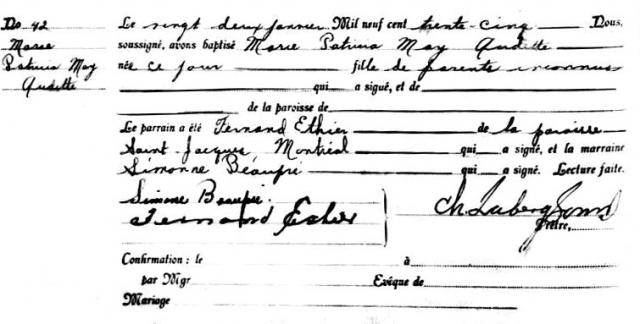 No. 42
Marie
Patricia May
Audette
Le vingt deux janvier Mil neuf cent trente-cinq Nous,
soussigné, avons baptisé Marie Patricia May Audette
née ce jour fille de parents inconnus
qui a signé, et de
de la paroisse de
Le parrain a été Fernand Ethier de la paroisse
Saint Jacques Montréal qui a signé, et la marraine
Simonne Beaupré qui a signé. Lecture faite.
Simone Beaupré.
Fernand Ethier
Prêtre,
Confirmation : le à
par Mgr Evêque de
Mariage